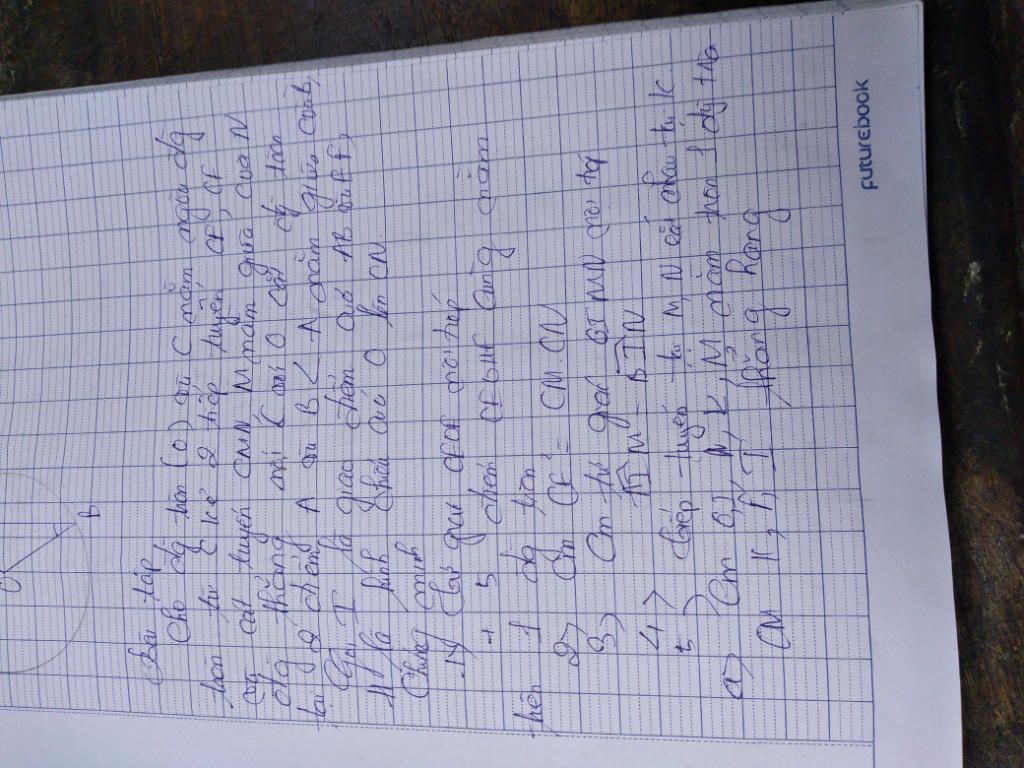 O
B
Bài tập
Cho đg tròn (O) và C nằm ngoài đg
tròn từ C kẻ 2 tiếp tuyến CE, CF
và cát tuyến CMN M nằm giữa C và N
đg thẳng nối C với O cắt đg tròn
tại 2 điểm A và B < A nằm giữa C và B,
Gọi I là giao điểm của AB với EF,
H là hình chiếu của O lên CN.
Chứng minh
1) tứ giác CEOF nội tiếp
+ 5 điểm cùng nằm
trên 1 đg tròn
2) Cm CE² = CM.CN
3) Cm tứ giác OIMN nội tiếp
4) = BIN
5) tiếp tuyến tại M, N cắt nhau tại K
a) Cm O, I, N, K, M nằm trên 1 đg tròn
CM thẳng hàng
FUTUREBOOK